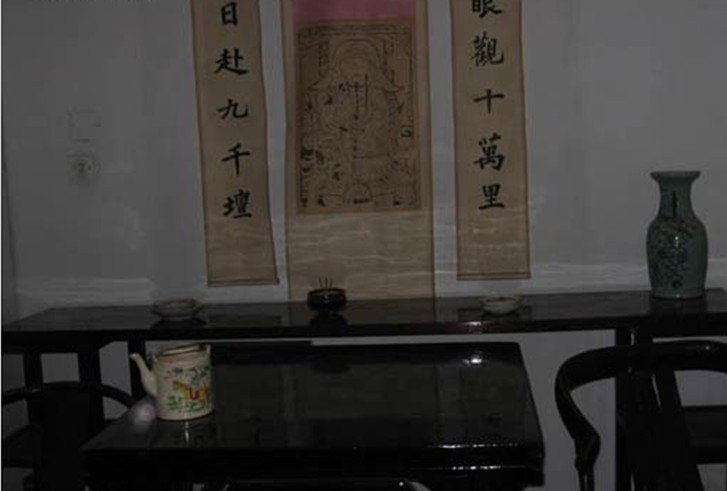 眼觀十萬里
日赴九千壇